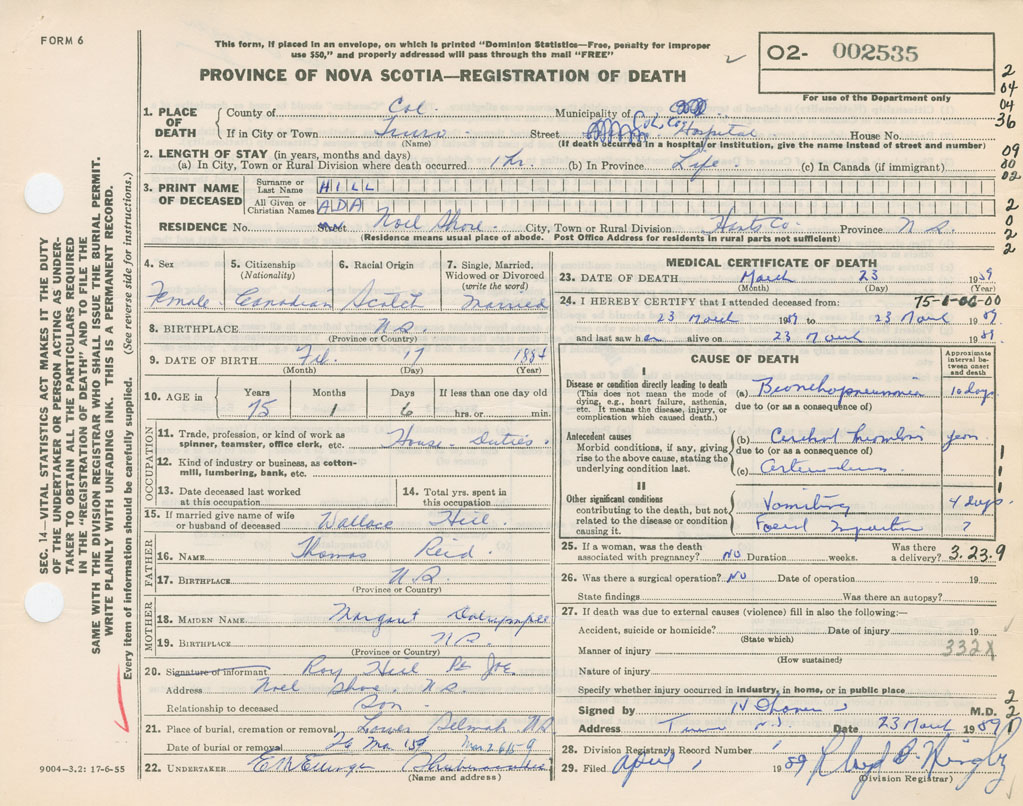 FORM 6
This form, if placed in an envelope, on which is printed "Dominion Statistics—Free, penalty for improper
use $50," and properly addressed will pass through the mail "FREE"
PROVINCE OF NOVA SCOTIA—REGISTRATION OF DEATH
O2- 002535
For use of the Department only
2
04
04
36
09
80
02
2
0
2
2
SEC. 14—VITAL STATISTICS ACT MAKES IT THE DUTY
OF THE UNDERTAKER OR PERSON ACTING AS UNDER-
TAKER TO OBTAIN ALL THE PARTICULARS REQUIRED
IN THE "REGISTRATION OF DEATH" AND TO FILE THE
SAME WITH THE DIVISION REGISTRAR WHO SHALL ISSUE THE BURIAL PERMIT.
WRITE PLAINLY WITH UNFADING INK. THIS IS A PERMANENT RECORD.
Every item of information should be carefully supplied. (See reverse side for instructions.)
1. PLACE OF DEATH
County of Col. Municipality of
If in City or Town Truro Street Col. Co. Hospital House No.
(Name) (If death occurred in a hospital or institution, give the name instead of street and number)
2. LENGTH OF STAY (in years, months and days)
(a) In City, Town or Rural Division where death occurred 1 hr (b) In Province Life (c) In Canada (if immigrant)
3. PRINT NAME OF DECEASED
Surname or Last Name HILL
All Given or Christian Names ADA
RESIDENCE No. Street Noel Shore City, Town or Rural Division Hants Co. Province N S.
(Residence means usual place of abode. Post Office Address for residents in rural parts not sufficient)
4. Sex 5. Citizenship (Nationality) 6. Racial Origin 7. Single, Married, Widowed or Divorced (write the word)
Female Canadian Scotch Married
8. BIRTHPLACE N.S.
(Province or Country)
9. DATE OF BIRTH Feb. 17 1884
(Month) (Day) (Year)
10. AGE in Years Months Days If less than one day old
75 1 6 hrs. or min.
OCCUPATION
11. Trade, profession, or kind of work as spinner, teamster, office clerk, etc. House-Duties
12. Kind of industry or business, as cotton-mill, lumbering, bank, etc.
13. Date deceased last worked at this occupation
14. Total yrs. spent in this occupation
15. If married give name of wife or husband of deceased Wallace Hill
FATHER
16. NAME Thomas Reid
17. BIRTHPLACE N.S.
(Province or Country)
MOTHER
18. MAIDEN NAME Margaret Dalrymple
19. BIRTHPLACE N.S.
(Province or Country)
20. Signature of informant Roy Hill
Address Noel Shore. N.S.
Relationship to deceased Son
21. Place of burial, cremation or removal Lower Selmah N.S.
Date of burial or removal 26 Mar 159 Mar 26 15-9
22. UNDERTAKER
(Name and address)
9004—3.2: 17-6-55
MEDICAL CERTIFICATE OF DEATH
23. DATE OF DEATH March 23 1959
(Month) (Day) (Year)
24. I HEREBY CERTIFY that I attended deceased from: 75-1-06-00
23 March 1959 to 23 March 1959
and last saw her alive on 23 March 1959
CAUSE OF DEATH
Approximate interval between onset and death
I
Disease or condition directly leading to death
(This does not mean the mode of dying, e.g., heart failure, asthenia, etc. It means the disease, injury, or complication which caused death.)
(a) Bronchopneumonia 10 days
due to (or as a consequence of)
Antecedent causes
Morbid conditions, if any, giving rise to the above cause, stating the underlying condition last.
(b) Cerebral Thrombosis years
due to (or as a consequence of)
(c)
1
1
1
II
Other significant conditions
contributing to the death, but not related to the disease or condition causing it.
Vomiting 4 days
Foecal Impaction ?
25. If a woman, was the death associated with pregnancy? No Duration weeks. Was there a delivery? 3.23.9
26. Was there a surgical operation? No Date of operation 19
State findings Was there an autopsy?
27. If death was due to external causes (violence) fill in also the following:—
Accident, suicide or homicide? Date of injury 19
(State which)
Manner of injury 332X
(How sustained)
Nature of injury
Specify whether injury occurred in industry, in home, or in public place
2
2
0
Signed by M.D.
Address Truro N.S. Date 23 March 1959
28. Division Registrar's Record Number
29. Filed April 1 1959
(Division Registrar)